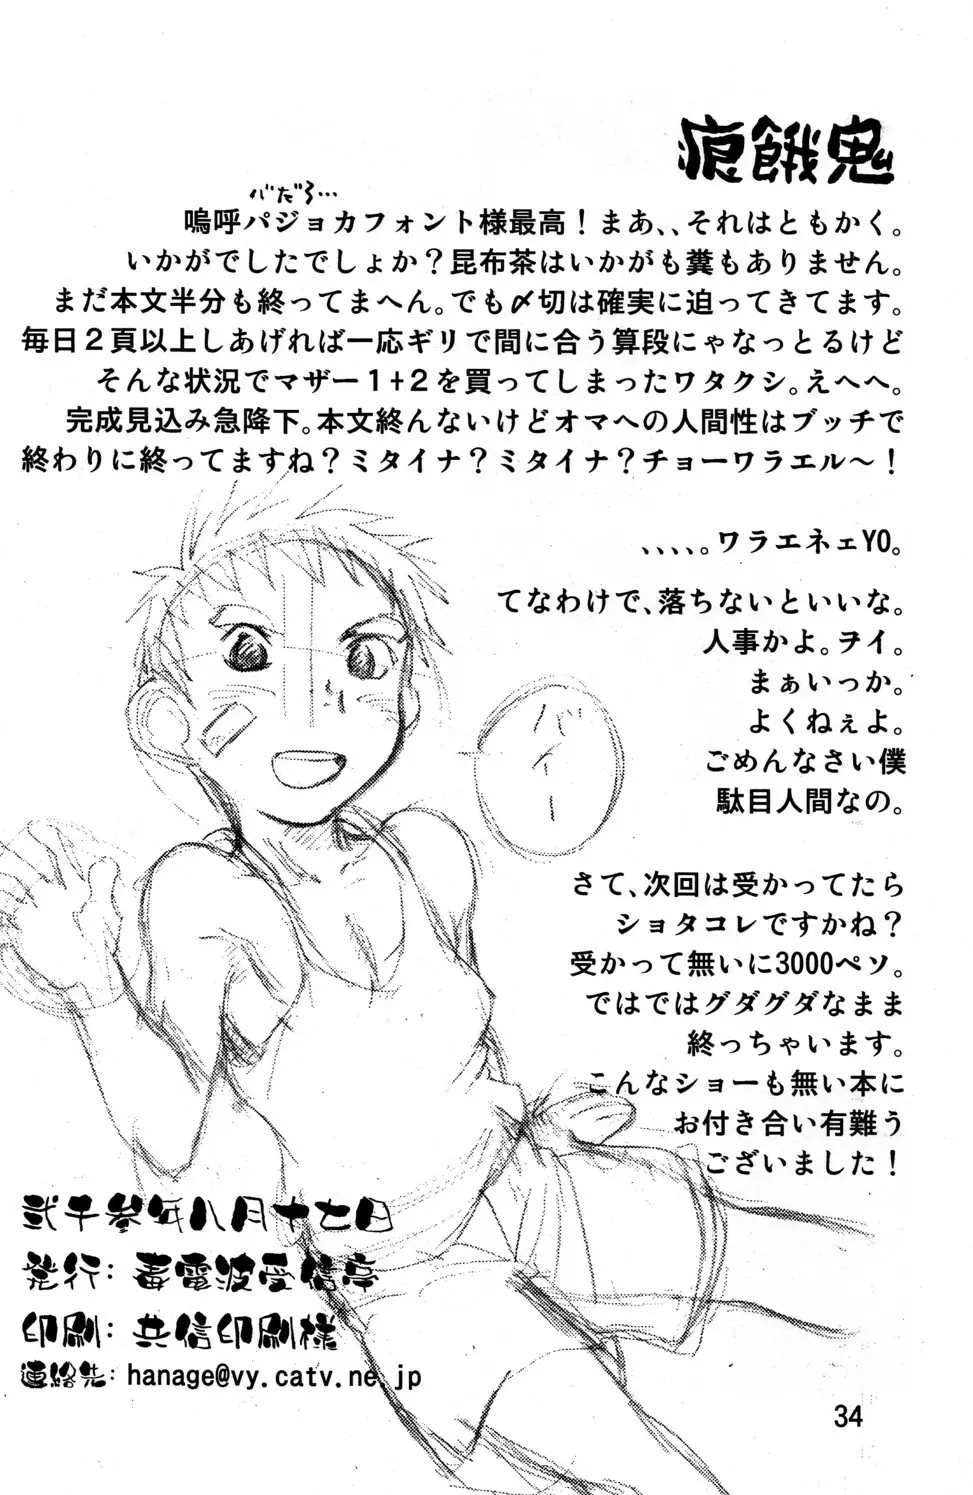 痕餓鬼
バだろ…
嗚呼パジョカフォント様最高！まあ、、それはともかく。
いかがでしたでしょか？昆布茶はいかがも糞もありません。
まだ本文半分も終ってまへん。でも〆切は確実に迫ってきてます。
毎日２頁以上しあげれば一応ギリで間に合う算段にゃなっとるけど
そんな状況でマザー１+２を買ってしまったワタクシ。えへへ。
完成見込み急降下。本文終んないけどオマへの人間性はブッチで
終わりに終ってますね？ミタイナ？ミタイナ？チョーワラエル〜！
、、、、。ワラエネェYO。
てなわけで、落ちないといいな。
人事かよ。ヲイ。
まぁいっか。
よくねぇよ。
ごめんなさい僕
駄目人間なの。
バイー
さて、次回は受かってたら
ショタコレですかね？
受かって無いに3000ペソ。
ではではグダグダなまま
終っちゃいます。
こんなショーも無い本に
お付き合い有難う
ございました！
弐千参年八月十七日
発行：毒電波受信亭
印刷：共信印刷様
連絡先：hanage@vy.catv.ne.jp
34